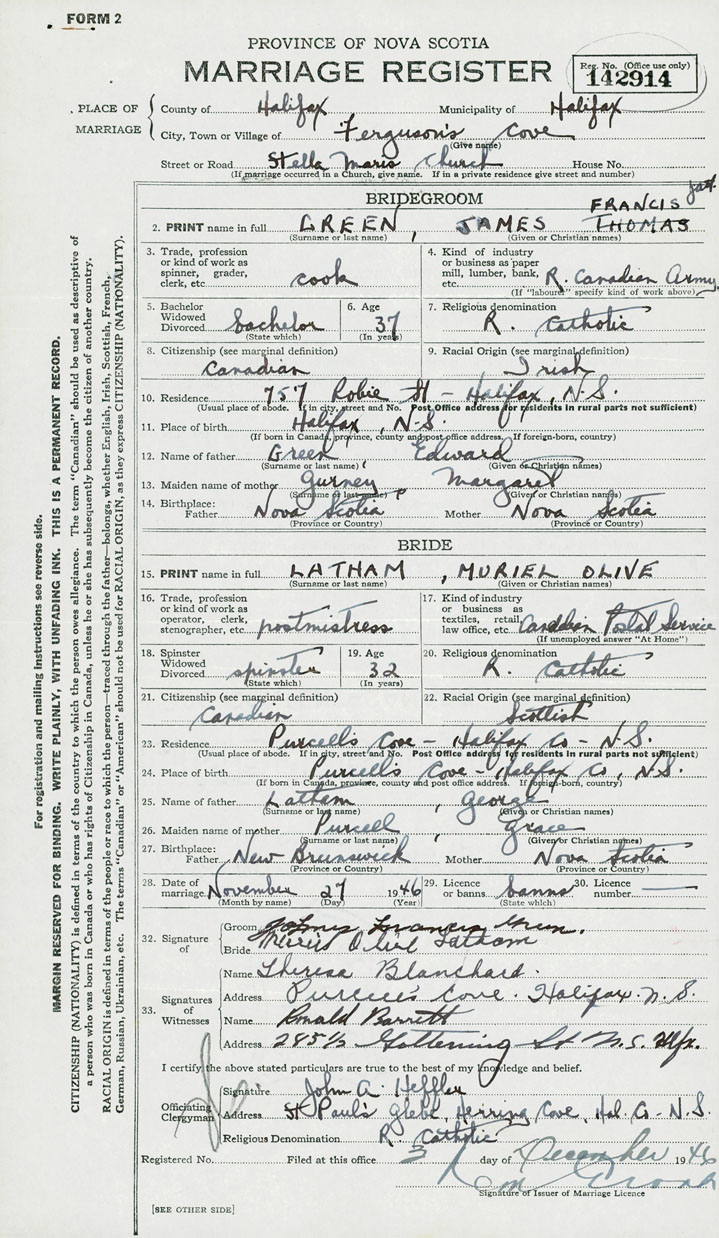 FORM 2
PROVINCE OF NOVA SCOTIA
MARRIAGE REGISTER
Reg. No. (Office use only)
142914
PLACE OF MARRIAGE
County of Halifax Municipality of Halifax
City, Town or Village of Ferguson's Cove
(Give name)
Street or Road Stella Maris Church House No.
(If marriage occurred in a Church, give name. If in a private residence give street and number)
BRIDEGROOM
FRANCIS
2. PRINT name in full GREEN, JAMES THOMAS
(Surname or last name) (Given or Christian names)
3. Trade, profession or kind of work as spinner, grader, clerk, etc. cook
4. Kind of industry or business as paper mill, lumber, bank, etc. R. Canadian Army
(If "labourer" specify kind of work above)
5. Bachelor Widowed Divorced bachelor
(State which)
6. Age 37
(In years)
7. Religious denomination R. Catholic
8. Citizenship (see marginal definition) Canadian
9. Racial Origin (see marginal definition) Irish
10. Residence 757 Robie St - Halifax, N.S.
(Usual place of abode. If in city, street and No. Post Office address for residents in rural parts not sufficient)
11. Place of birth Halifax, N.S.
(If born in Canada, province, county and post office address. If foreign-born, country)
12. Name of father Green, Edward
(Surname or last name) (Given or Christian names)
13. Maiden name of mother Gurney, Margaret
(Surname or last name) (Given or Christian names)
14. Birthplace: Father Nova Scotia Mother Nova Scotia
(Province or Country) (Province or Country)
BRIDE
15. PRINT name in full LATHAM, MURIEL OLIVE
(Surname or last name) (Given or Christian names)
16. Trade, profession or kind of work as operator, clerk, stenographer, etc. postmistress
17. Kind of industry or business as textiles, retail, law office, etc. Canadian Postal Service
(If unemployed answer "At Home")
18. Spinster Widowed Divorced spinster
(State which)
19. Age 32
(In years)
20. Religious denomination R. Catholic
21. Citizenship (see marginal definition) Canadian
22. Racial Origin (see marginal definition) Scottish
23. Residence Purcell's Cove - Halifax Co - N.S.
(Usual place of abode. If in city, street and No. Post Office address for residents in rural parts not sufficient)
24. Place of birth Purcell's Cove - Halifax Co, N.S.
(If born in Canada, province, county and post office address. If foreign-born, country)
25. Name of father Latham, George
(Surname or last name) (Given or Christian names)
26. Maiden name of mother Purcell, Grace
(Surname or last name) (Given or Christian names)
27. Birthplace: Father New Brunswick Mother Nova Scotia
(Province or Country) (Province or Country)
28. Date of marriage November 27 1946
(Month by name) (Day) (Year)
29. Licence or banns banns
(State which)
30. Licence number
32. Signature of
Groom Francis Green
Bride Olive Latham
33. Signatures of Witnesses
Name Theresa Blanchard
Address Purcell's Cove. Halifax. N.S.
Name Ronald Barrett
Address 285½ St N.S. Hfx.
I certify the above stated particulars are true to the best of my knowledge and belief.
Officiating Clergyman
Signature John A. Heffler
Address St Paul's Glebe, Herring Cove, Hal. Co - N.S.
Religious Denomination R. Catholic
Registered No. Filed at this office 3 day of December 1946
Signature of Issuer of Marriage Licence
[SEE OTHER SIDE]
For registration and mailing instructions see reverse side.
MARGIN RESERVED FOR BINDING. WRITE PLAINLY, WITH UNFADING INK. THIS IS A PERMANENT RECORD.
CITIZENSHIP (NATIONALITY) is defined in terms of the country to which the person owes allegiance. The term "Canadian" should be used as descriptive of
a person who was born in Canada or who has rights of Citizenship in Canada, unless he or she has subsequently become the citizen of another country.
RACIAL ORIGIN is defined in terms of the people or race to which the person—traced through the father—belongs, whether English, Irish, Scottish, French,
German, Russian, Ukrainian, etc. The terms "Canadian" or "American" should not be used for RACIAL ORIGIN, as they express CITIZENSHIP (NATIONALITY).